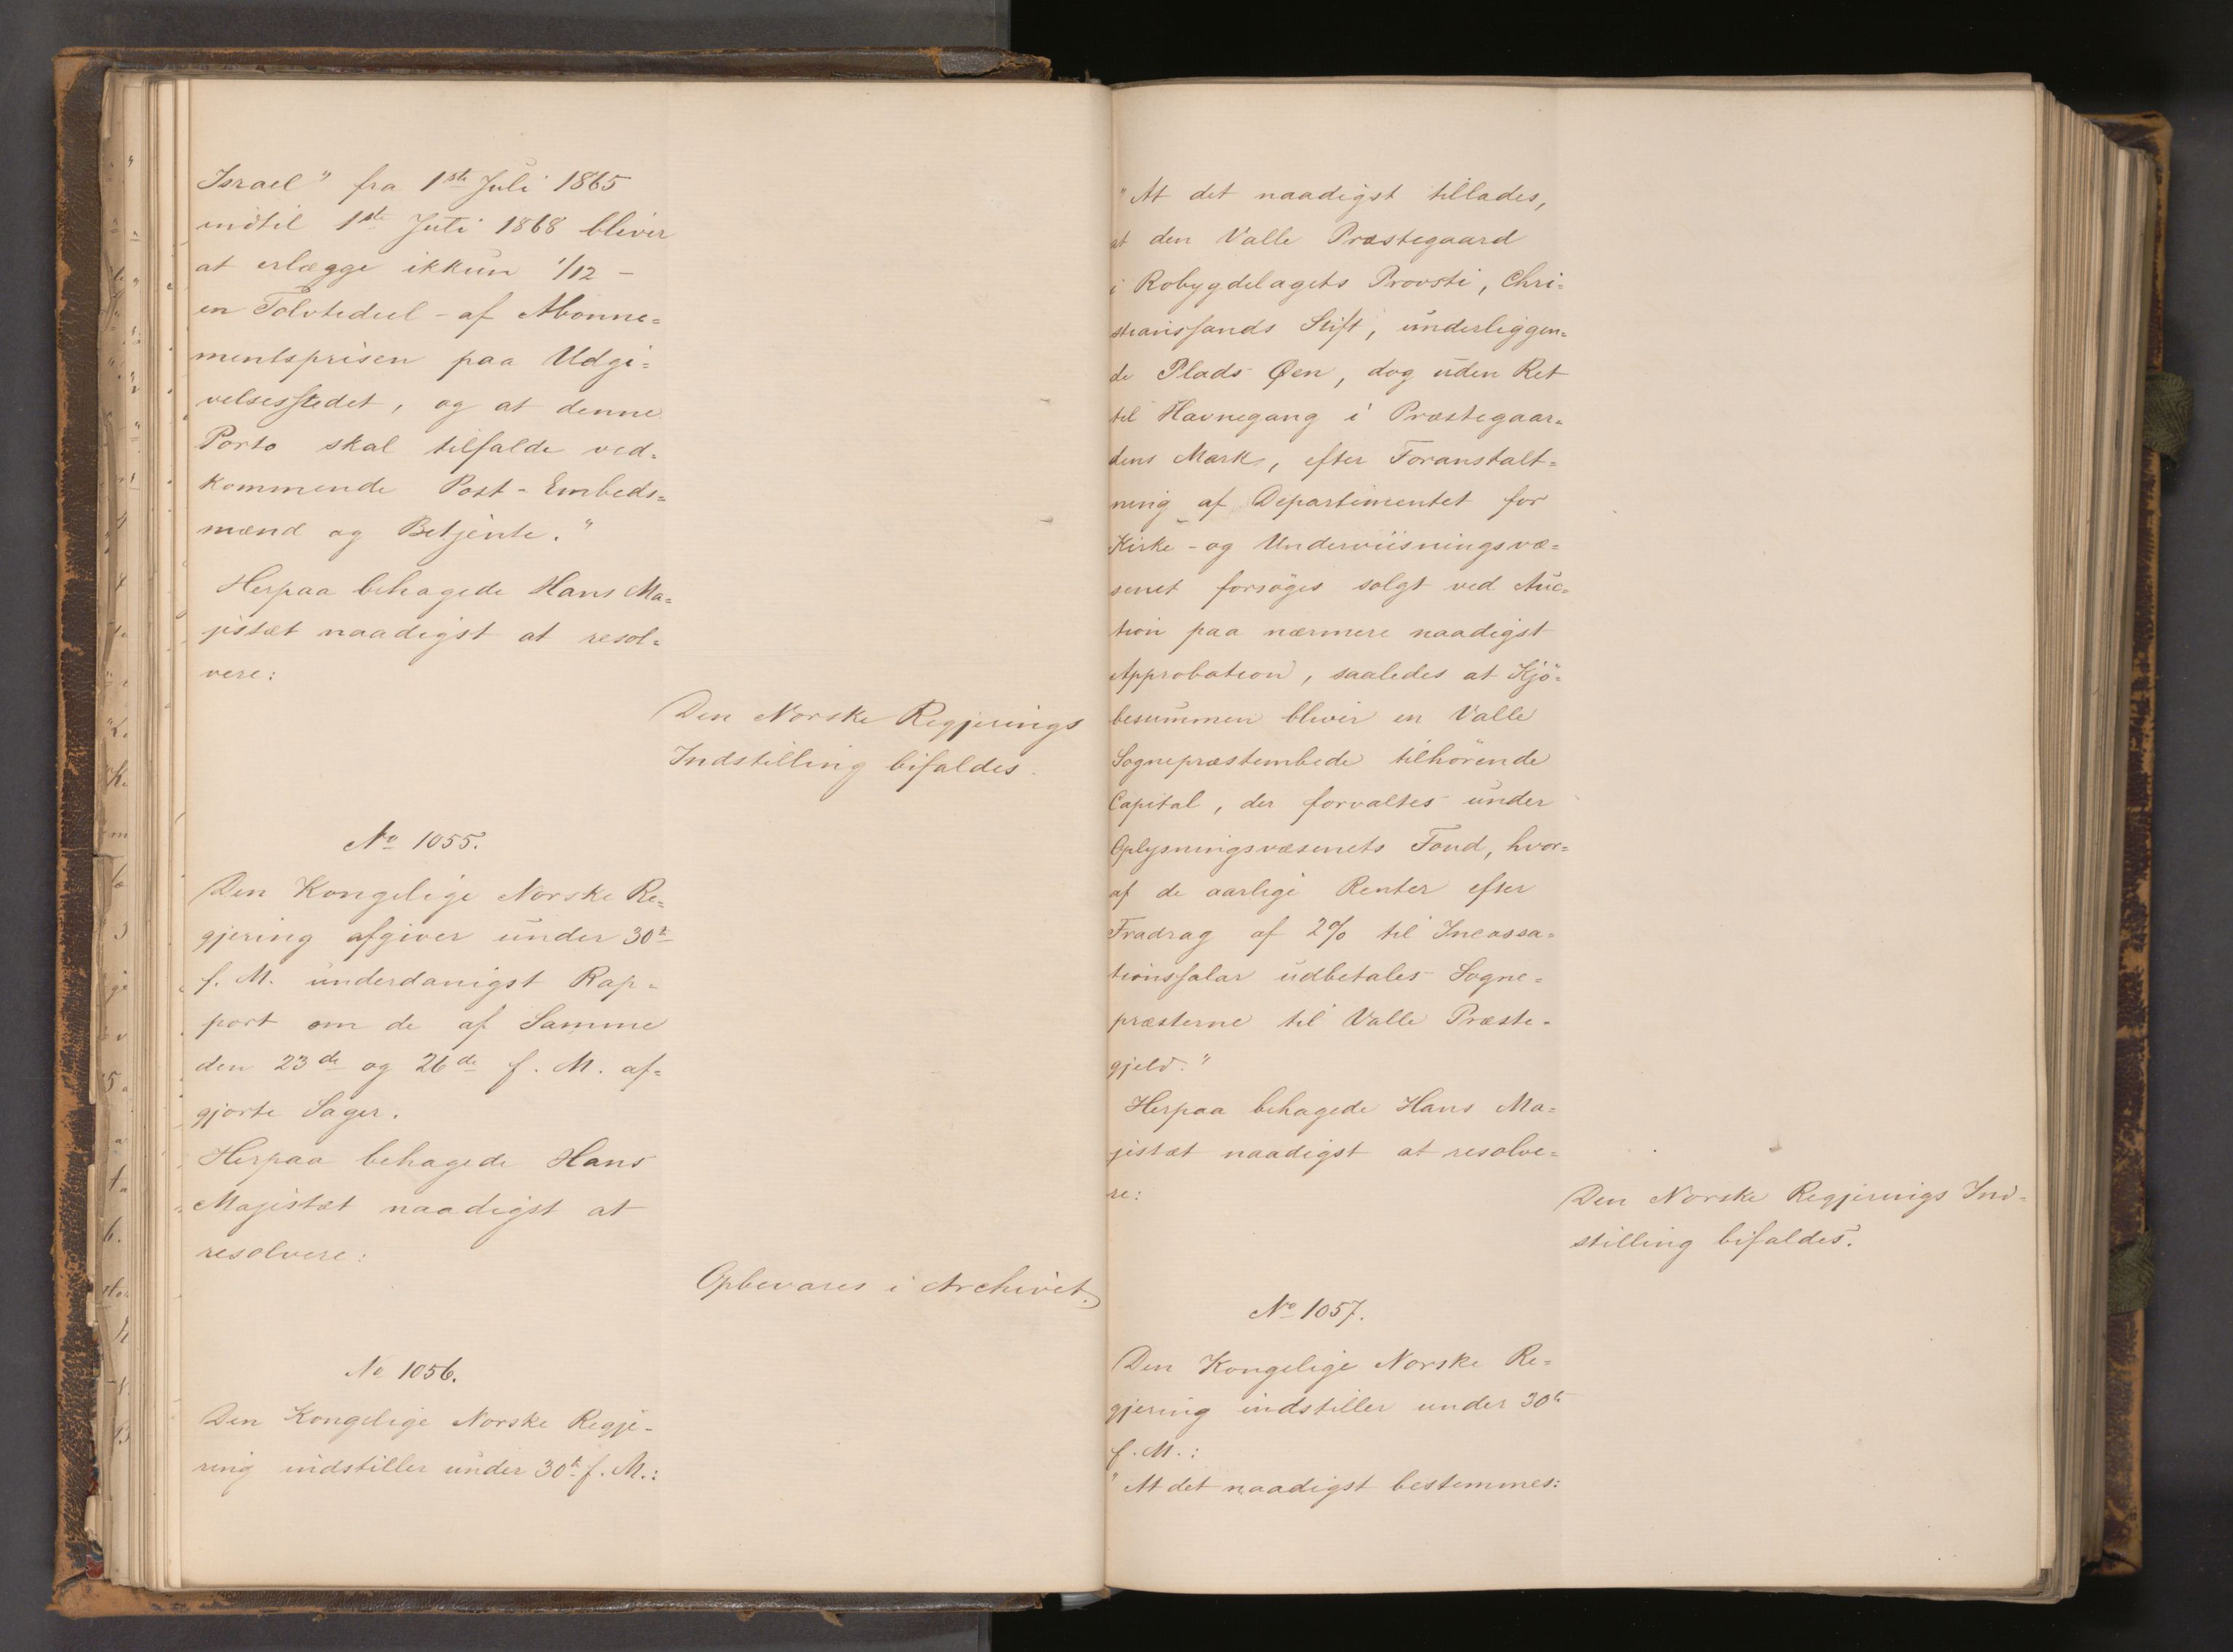 Israel" fra 1ste Juli 1865
indtil 1ste Juli 1868 bliver
at erlægge ikkun 1/12 -
en Tolvtedeel - af Abonne=
mentsprisen paa Udgi=
velsesstedet, og at denne
Porto skal tilfalde ved=
kommende Post-Embeds=
mænd og Betjente."
Herpaa behagede Hans Ma=
jestæt naadigst at resol=
vere:
Den Norske Regjerings
Indstilling bifaldes.
No 1055.
Den Kongelige Norske Re=
gjering afgiver under 30te
f. M. underdanigst Rap=
port om de af Samme
den 23de og 26de f. M. af=
gjorte Sager.
Herpaa behagede Hans
Majestæt naadigst at
resolvere:
Opbevares i Archivet.
No 1056.
Den Kongelige Norske Regje=
ring indstiller under 30te f. M.:
"At det naadigst tillades,
at den Valle Præstegaard
i Robygdelagets Provsti, Chri=
stianssands Stift, underliggen=
de Plads Øen, dog uden Ret
til Havnegang i Præstegaar=
dens Mark, efter Foranstalt=
ning af Departementet for
Kirke- og Underviisningsvæ=
senet forsøges solgt ved Auc=
tion paa nærmere naadigst
Approbation, saaledes at Kjö=
besummen bliver en Valle
Sognepræstembede tilhörende
Capital, der forvaltes under
Oplysningsvæsenets Fond, hvor=
af de aarlige Renter efter
Fradrag af 2% til Incassa=
tionssalar udbetales Sogne=
præsterne til Valle Præste=
gjeld."
Herpaa behagede Hans Ma=
jestæt naadigst at resolve=
re:
Den Norske Regjerings Ind=
stilling bifaldes.
No 1057.
Den Kongelige Norske Re=
gjering indstiller under 30te
f. M.:
"At det naadigst bestemmes: